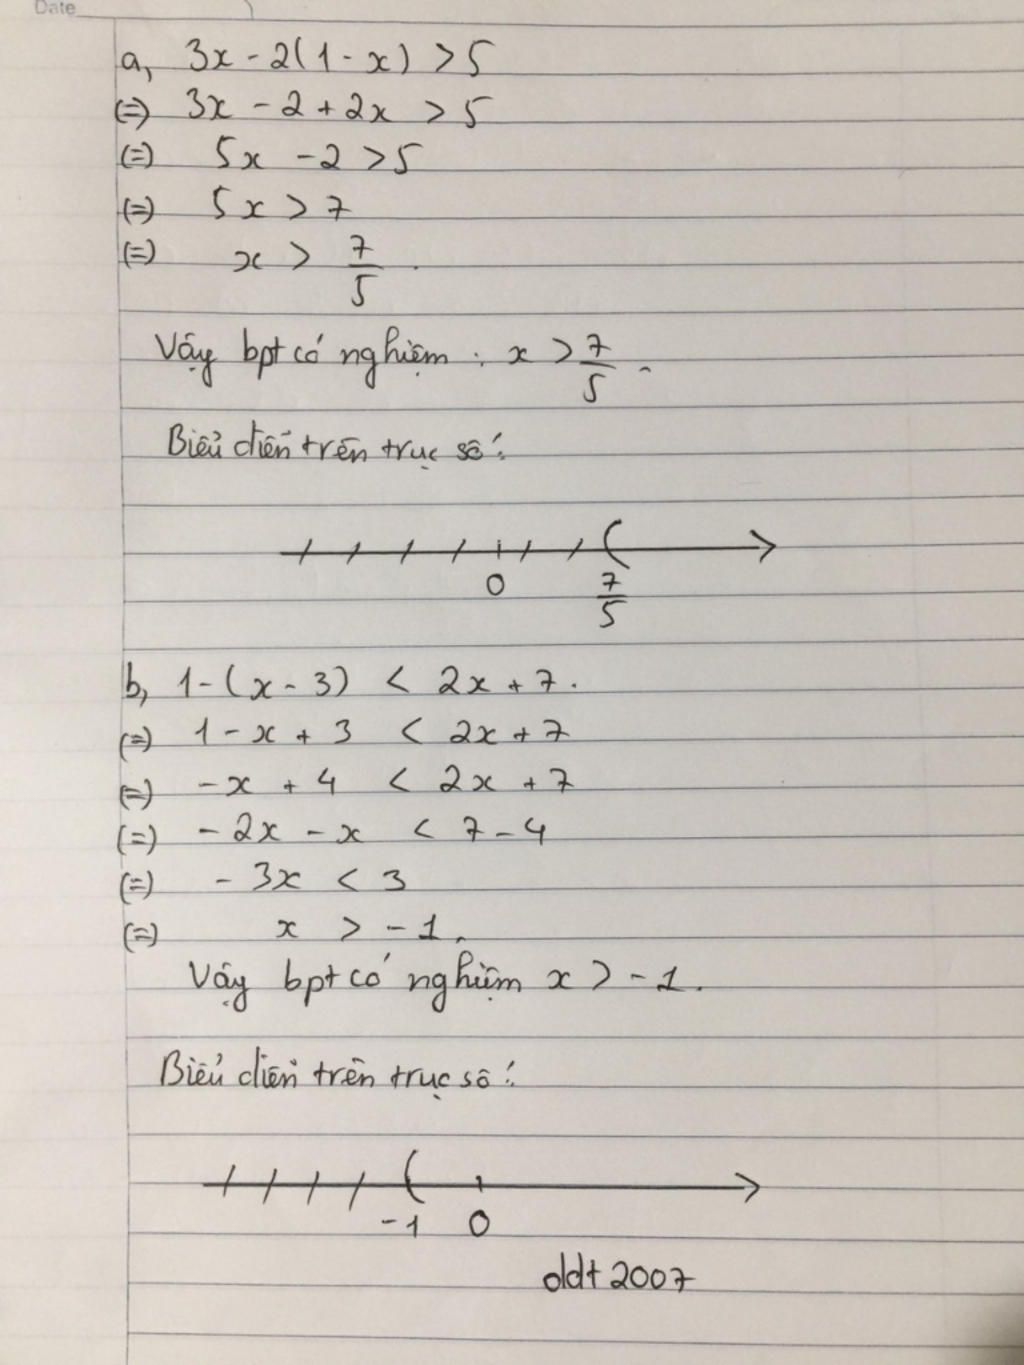 Date
a, 3x - 2(1 - x) > 5
(=) 3x - 2 + 2x > 5
(=) 5x - 2 > 5
(=) 5x > 7
(=) x > 7/5.
Vậy bpt có nghiệm : x > 7/5.
Biểu diễn trên trục số:
0 7/5
b, 1 - (x - 3) < 2x + 7.
(=) 1 - x + 3 < 2x + 7
(=) - x + 4 < 2x + 7
(=) - 2x - x < 7 - 4
(=) - 3x < 3
(=) x > - 1.
Vậy bpt có nghiệm x > - 1.
Biểu diễn trên trục số:
-1 0
oldt 2007